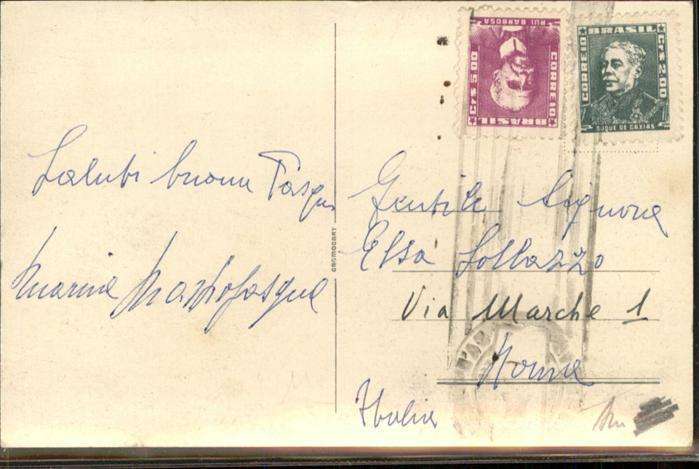 Saluti buona Pasqua
Marina
CROMOCART
RUI BARBOSA
CORREIO
Cr$ 5,00
BRASIL
BRASIL
CORREIO
Cr$ 2,00
DUQUE DE CAXIAS
Gentile Signora
Elsa Sollazzo
Via Marche 1
Roma
Italia